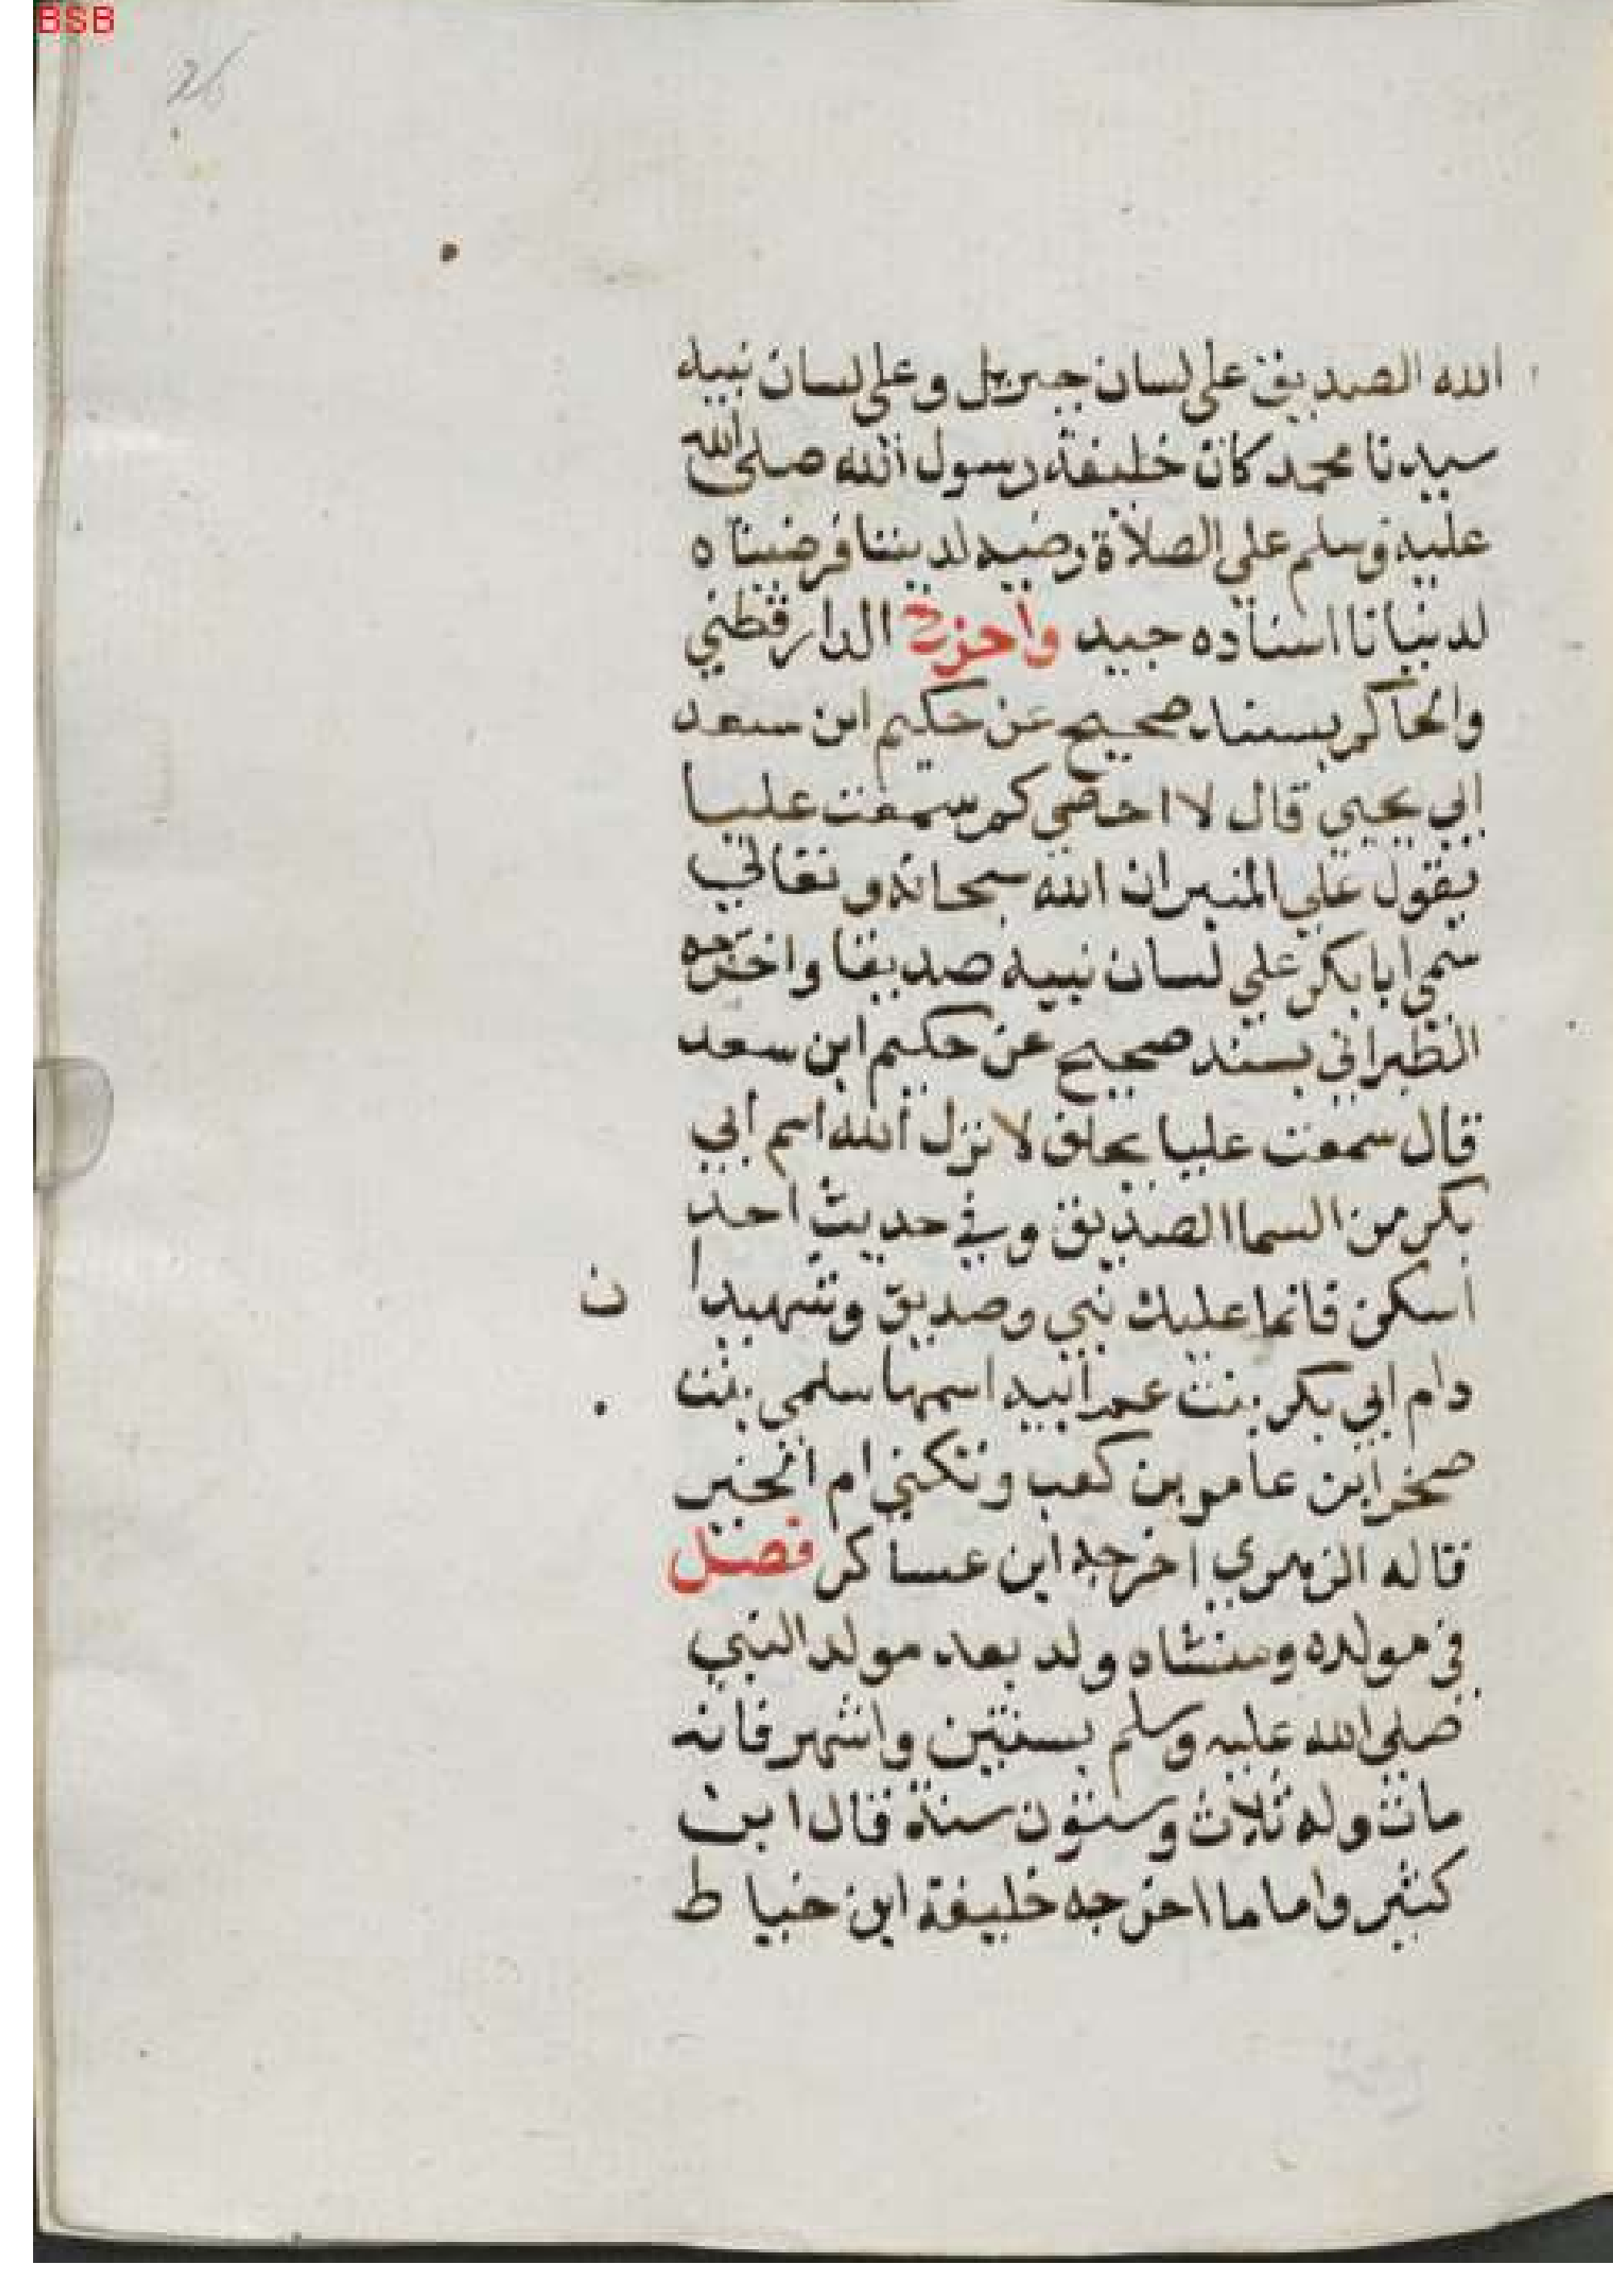 BSB
26
الله الصديق على لسان جبريل وعلى لسان نبيه
سيدنا محمد كان خليفة رسول الله صلى الله
عليه وسلم علي الصلاة رضيه لديننا فرضيناه
لدنيانا اسناده جيد واخرج الدارقطني
والحاكم بسند صحيح عن حكيم ابن سعد
ابي يحيي قال لا احصي كم سمعت عليا
يقول علي المنبر ان الله سبحانه وتعالي
سمي ابا بكر علي لسان نبيه صديقا واخرجه
الطبراني بسند صحيح عن حكيم ابن سعد
قال سمعت عليا يحلف لا نزل الله اسم ابي
بكر من السما الصديق وفي حديث احد
اسكن فانما عليك نبي وصديق وشهيدا ن
دام ابي بكر بنت عم ابيه اسمها سلمي بنت
صخر ابن عامر بن كعب وتكني ام الخير
قاله الزهري اخرجه ابن عساكر فصل
في مولده ومنشاه ولد بعد مولد النبي
صلي الله عليه وسلم بسنتين واشهر فانه
مات وله ثلاث وستون سنة قال ابن
كثير واما ما اخرجه خليفة ابن خياط